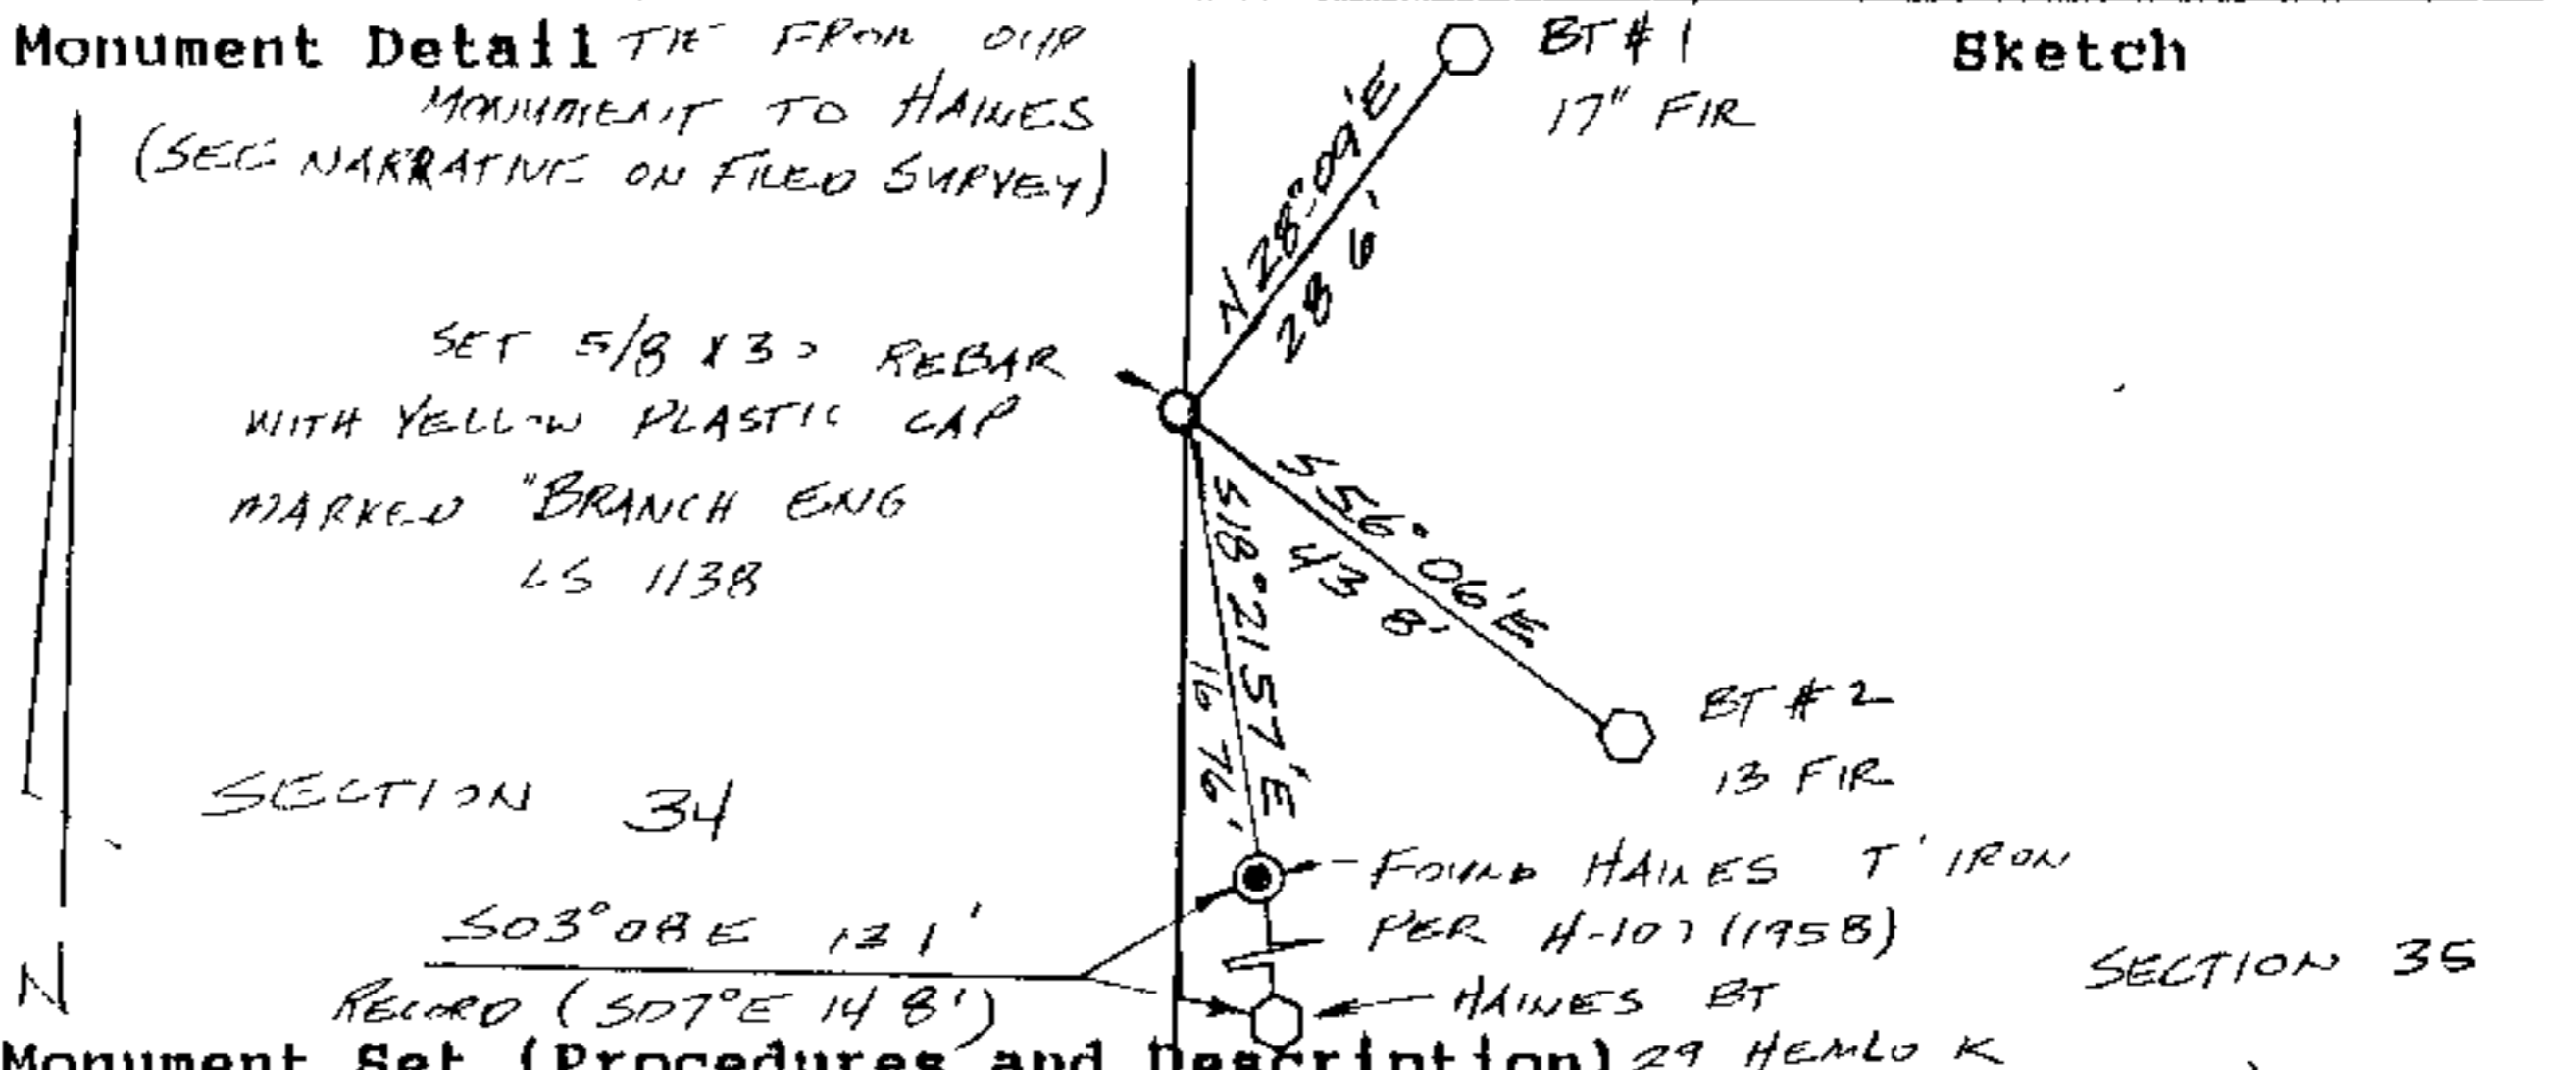 Monument Detail TIE FROM OUR
MONUMENT TO HAINES
(SEE NARRATIVE ON FILED SURVEY)
Sketch
BT # 1
17" FIR
N 28° 09' E
28 6'
SET 5/8 X 30 REBAR
WITH YELLOW PLASTIC CAP
MARKED "BRANCH ENG
LS 1138
S 56° 06' E
43 8'
S18° 21 57' E
16 76'
BT # 2
13 FIR
SECTION 34
FOUND HAINES T' IRON
PER H-107 (1958)
S03° 08 E 13 1'
RECORD (S07° E 14 8')
HAINES BT
29 HEMLO K
SECTION 35
N
Monument Set (Procedures and Description)